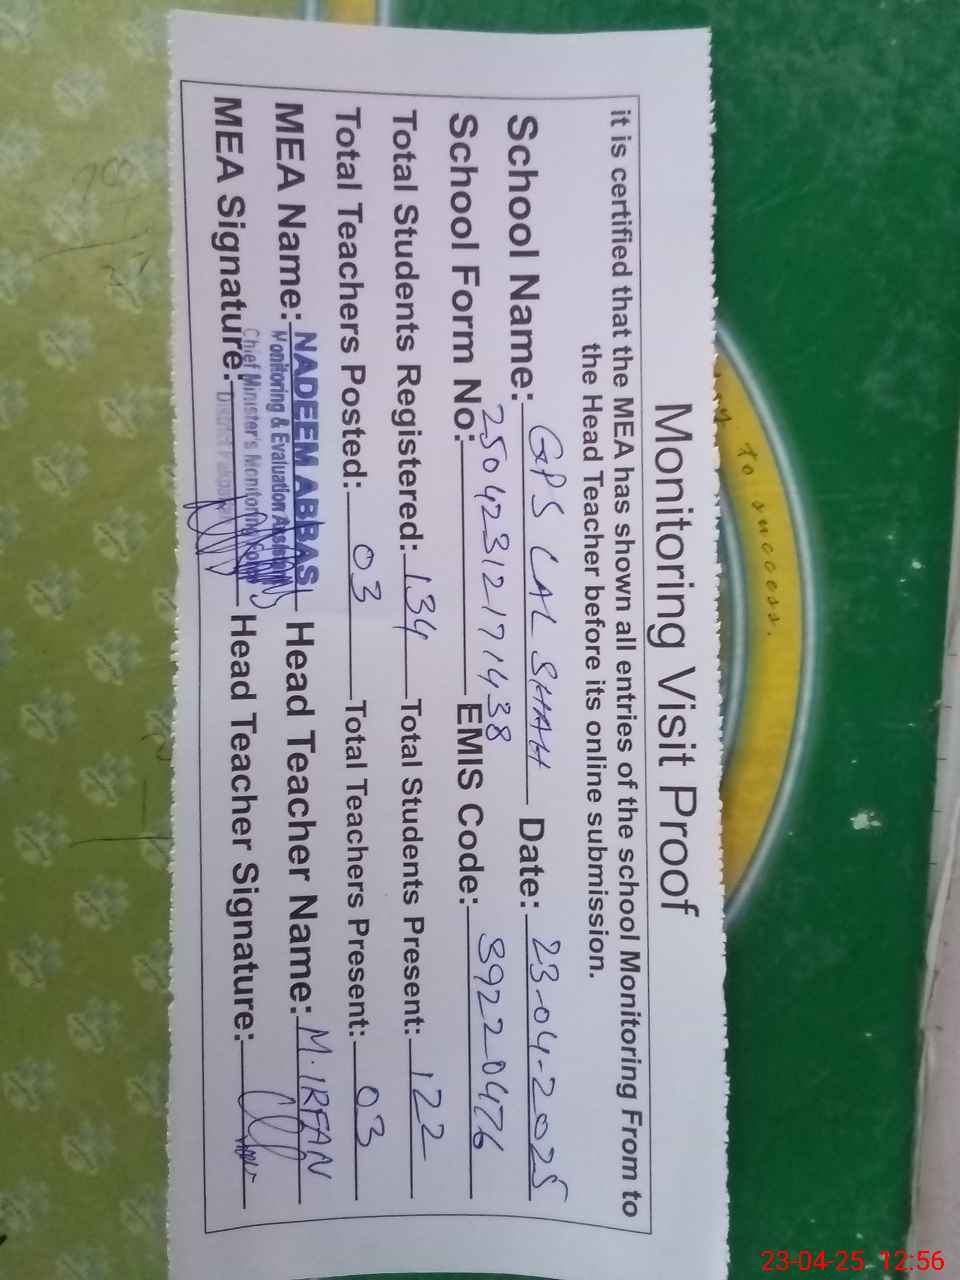 Monitoring Visit Proof
it is certified that the MEA has shown all entries of the school Monitoring From to
the Head Teacher before its online submission.
School Name: GPS LAL SHAH Date: 23-04-2025
School Form No: 25042312171438 EMIS Code: 39220476
Total Students Registered: 134 Total Students Present: 122
Total Teachers Posted: 03 Total Teachers Present: 03
MEA Name: NADEEM ABBAS Head Teacher Name: M.IRFAN
Monitoring & Evaluation Assistant
Chief Minister's Monitoring
MEA Signature: Head Teacher Signature:
District
to success.
23-04-25 12:56